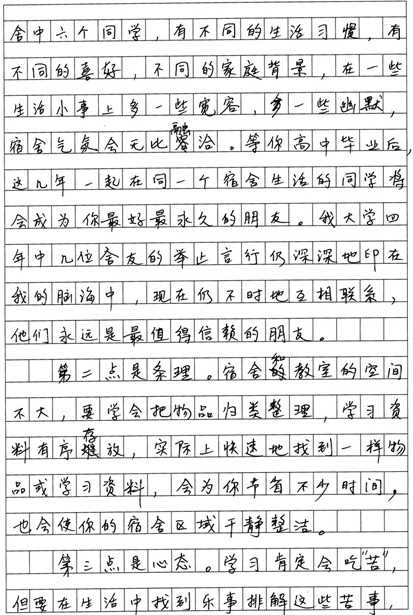 舍中六个同学，有不同的生活习惯，有
不同的喜好，不同的家庭背景，在一些
生活小事上多一些宽容，多一些幽默，
宿舍气氛会无比融洽。等你高中毕业后，
这几年一起在同一个宿舍生活的同学将
会成为你最好最永久的朋友。我大学四
年中几位舍友的举止言行仍深深地印在
我的脑海中，现在仍不时地互相联系，
他们永远是最值得信赖的朋友。
第二点是条理。宿舍和教室的空间
不大，要学会把物品归类整理，学习资
料有序存放，实际上快速地找到一样物
品或学习资料，会为你节省不少时间，
也会使你的宿舍区域干静整洁。
第三点是心态。学习肯定会吃“苦”，
但要在生活中找到乐事排解这些苦事，